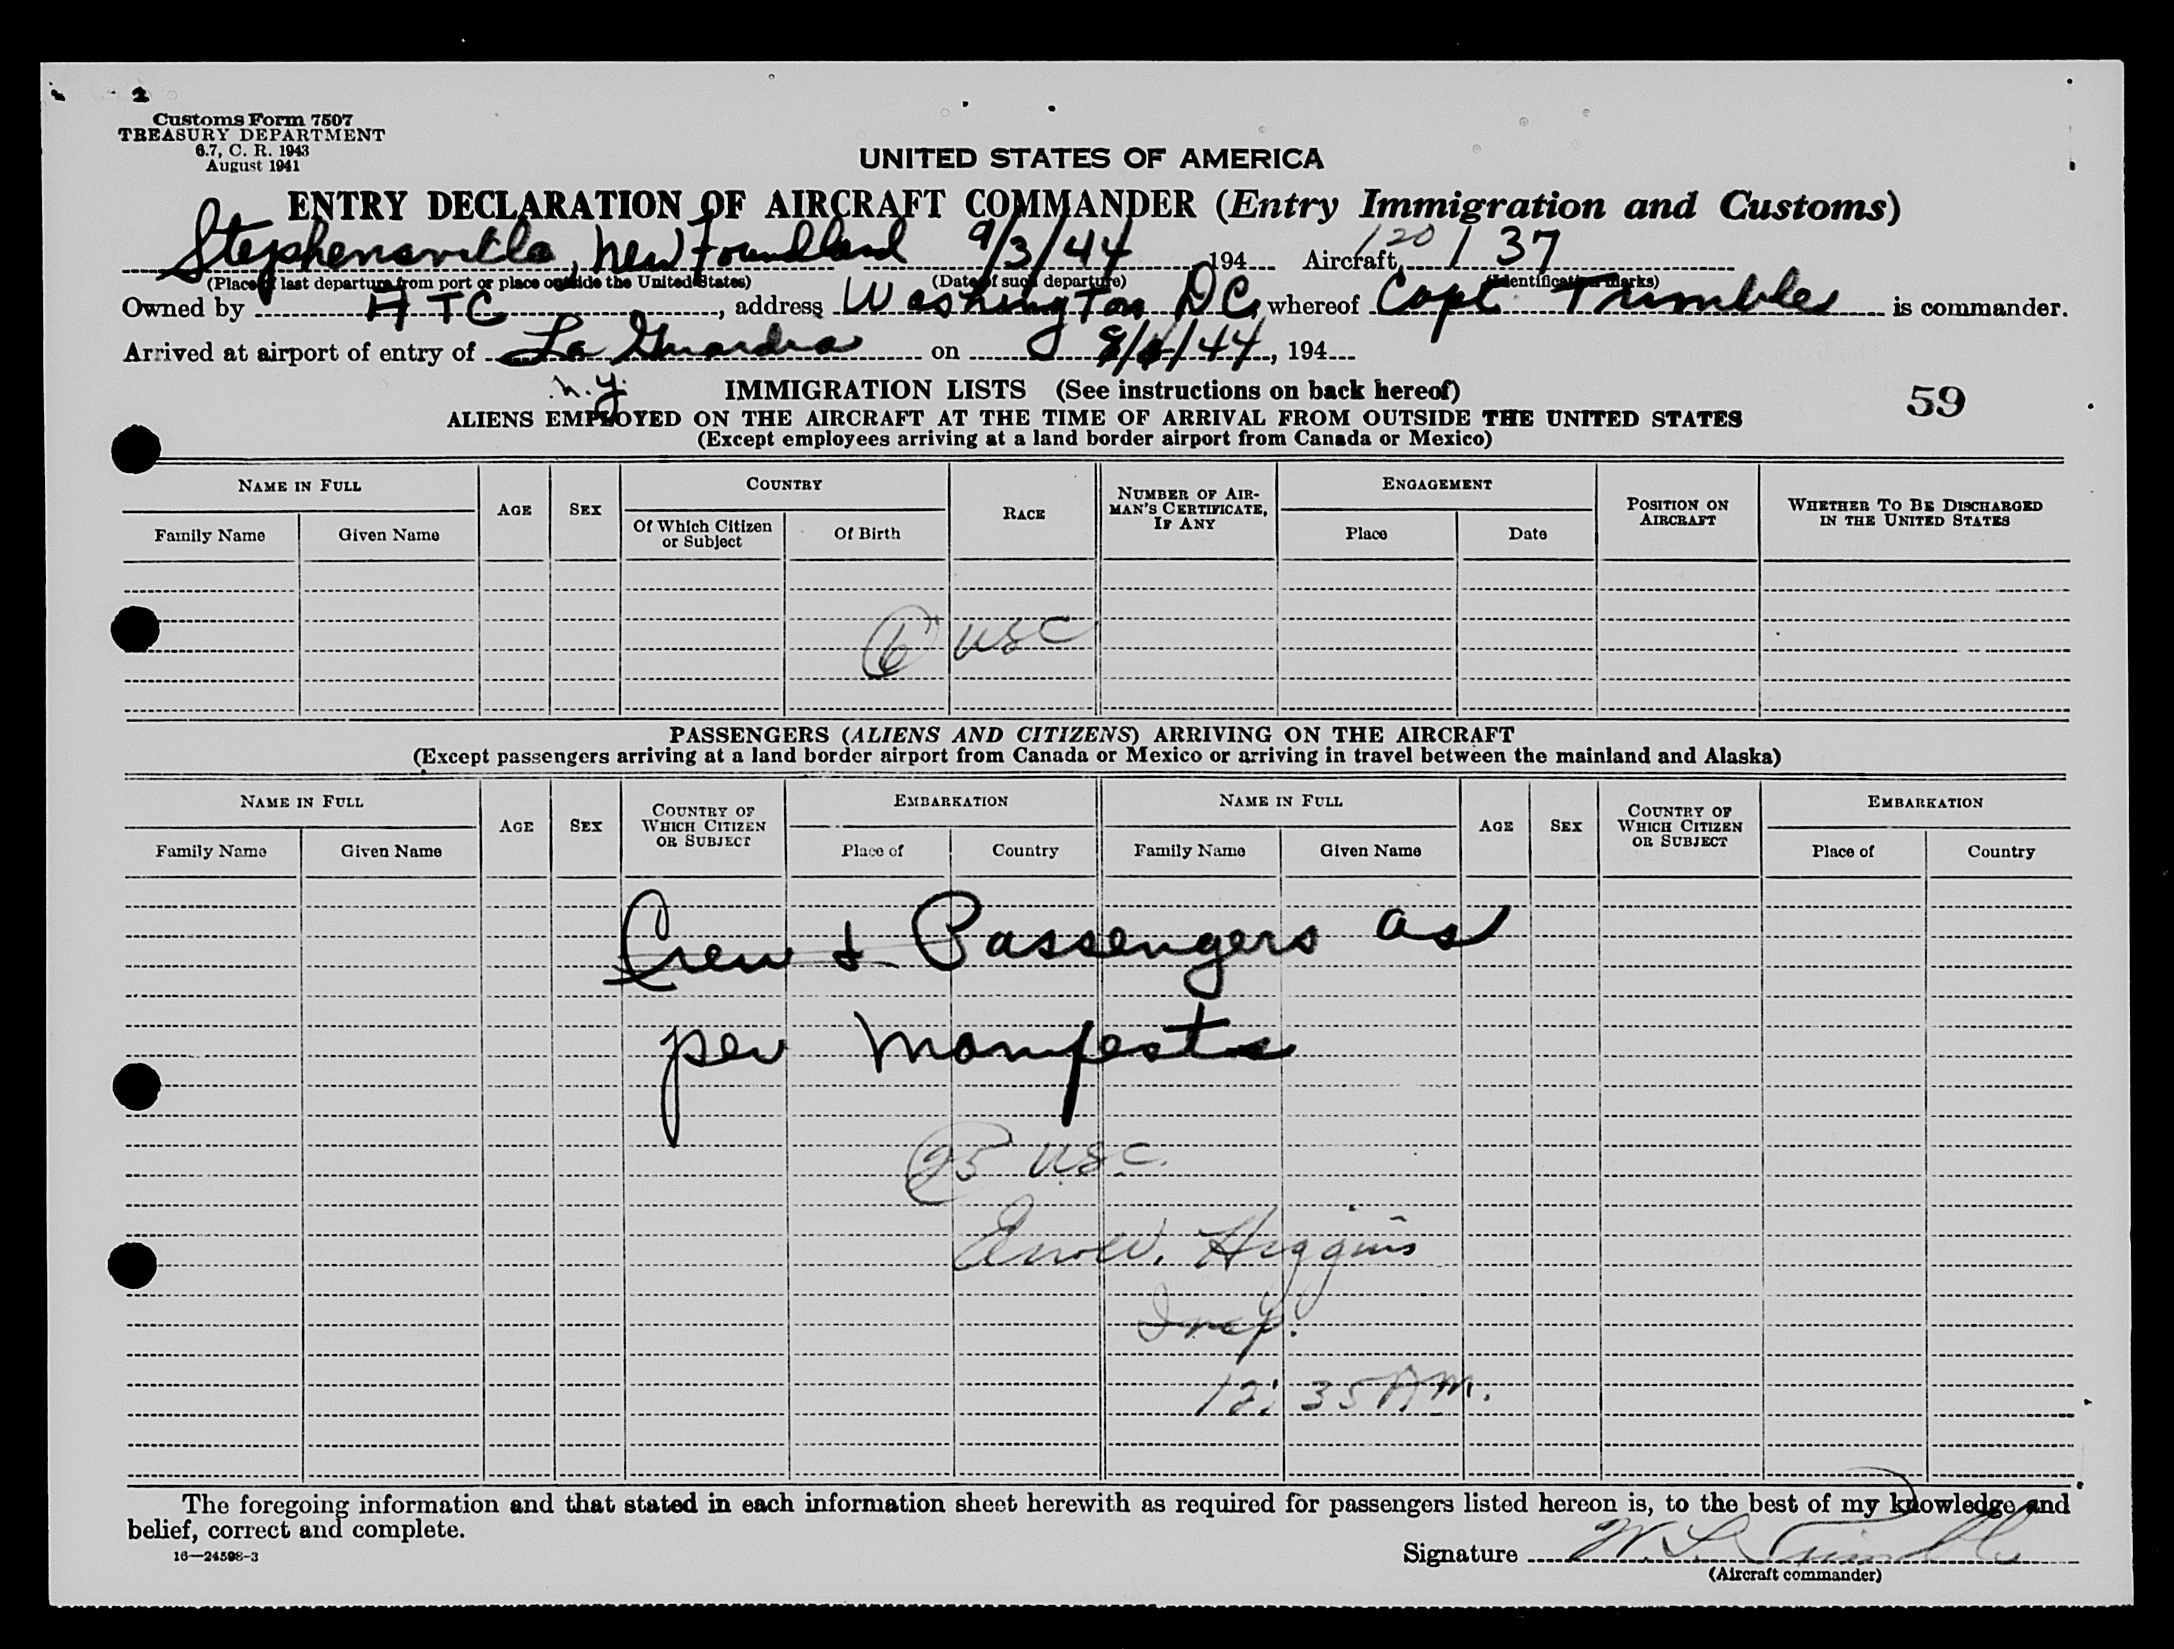 2
Customs Form 7507
TREASURY DEPARTMENT
6.7, C. R. 1943
August 1941
UNITED STATES OF AMERICA
ENTRY DECLARATION OF AIRCRAFT COMMANDER (Entry Immigration and Customs)
Stephensville, Newfoundland 9/3/44, 194 Aircraft 120/137
(Place of last departure from port or place outside the United States) (Date of such departure) (Identification marks)
Owned by ATC, address Washington DC, whereof Capt. Trimble is commander.
Arrived at airport of entry of La Guardia on /44, 194
N.Y.
IMMIGRATION LISTS (See instructions on back hereof)
59
ALIENS EMPLOYED ON THE AIRCRAFT AT THE TIME OF ARRIVAL FROM OUTSIDE THE UNITED STATES
(Except employees arriving at a land border airport from Canada or Mexico)
NAME IN FULL AGE SEX COUNTRY RACE NUMBER OF AIRMAN'S CERTIFICATE, IF ANY ENGAGEMENT POSITION ON AIRCRAFT WHETHER TO BE DISCHARGED IN THE UNITED STATES
Family Name Given Name Of Which Citizen or Subject Of Birth Place Date
6 USC
PASSENGERS (ALIENS AND CITIZENS) ARRIVING ON THE AIRCRAFT
(Except passengers arriving at a land border airport from Canada or Mexico or arriving in travel between the mainland and Alaska)
NAME IN FULL AGE SEX COUNTRY OF WHICH CITIZEN OR SUBJECT EMBARKATION NAME IN FULL AGE SEX COUNTRY OF WHICH CITIZEN OR SUBJECT EMBARKATION
Family Name Given Name Place of Country Family Name Given Name Place of Country
Crew & Passengers as
per Manifests
25 USC.
Higgins
Insp.
12:35 AM.
The foregoing information and that stated in each information sheet herewith as required for passengers listed hereon is, to the best of my knowledge and
belief, correct and complete.
16—24598-3
Signature W L Trimble
(Aircraft commander)